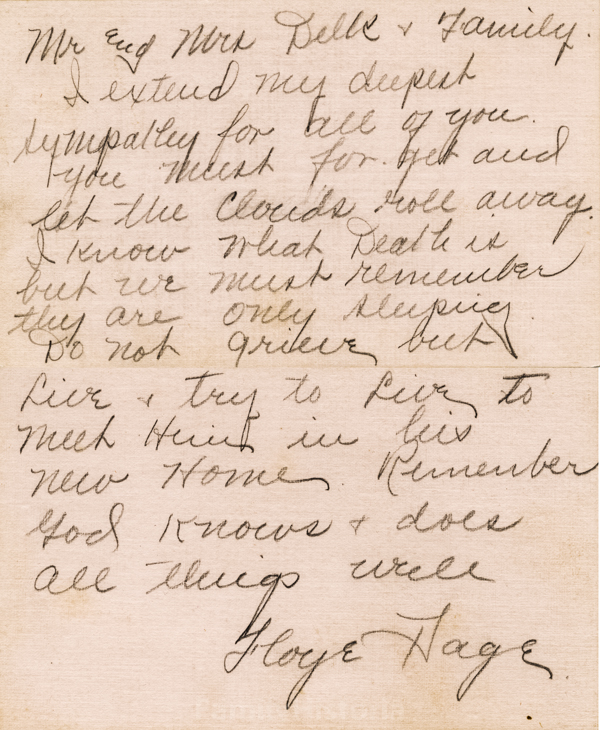 Mr and Mrs Delk + Family.
I extend my deepest
sympathy for all of you.
you must for get and
let the Clouds roll away.
I know what Death is
but we must remember
they are only sleeping.
Do not grieve but
Live + try to Live to
meet Him in his
new Home. Remember
God Knows + does
all things well
Floye